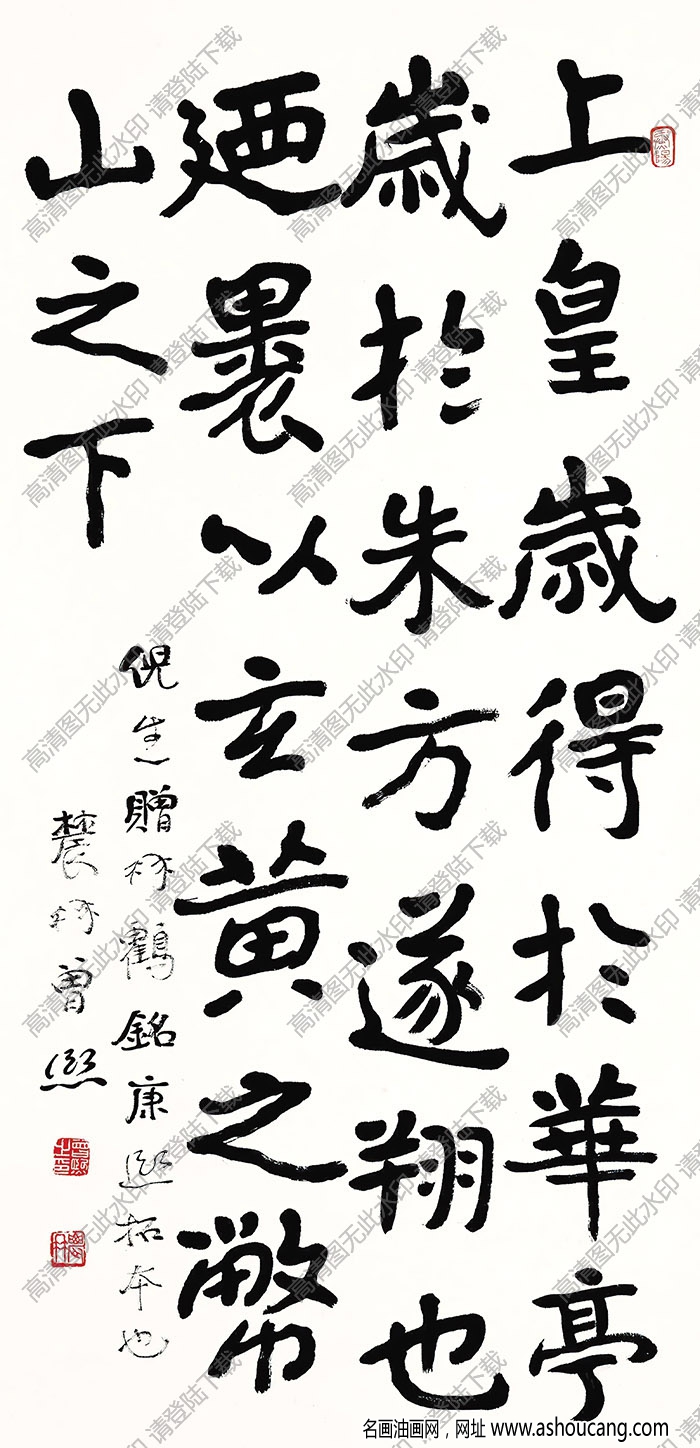 上皇歲得於華亭
歲於朱方遂翔也
廼裹以玄黃之幣
山之下
倪生贈余鶴銘康熙拓本也
農髯曾熙
曾熙之印
高清图无此水印 请登陆下载
名画油画网，网址 www.ashoucang.com